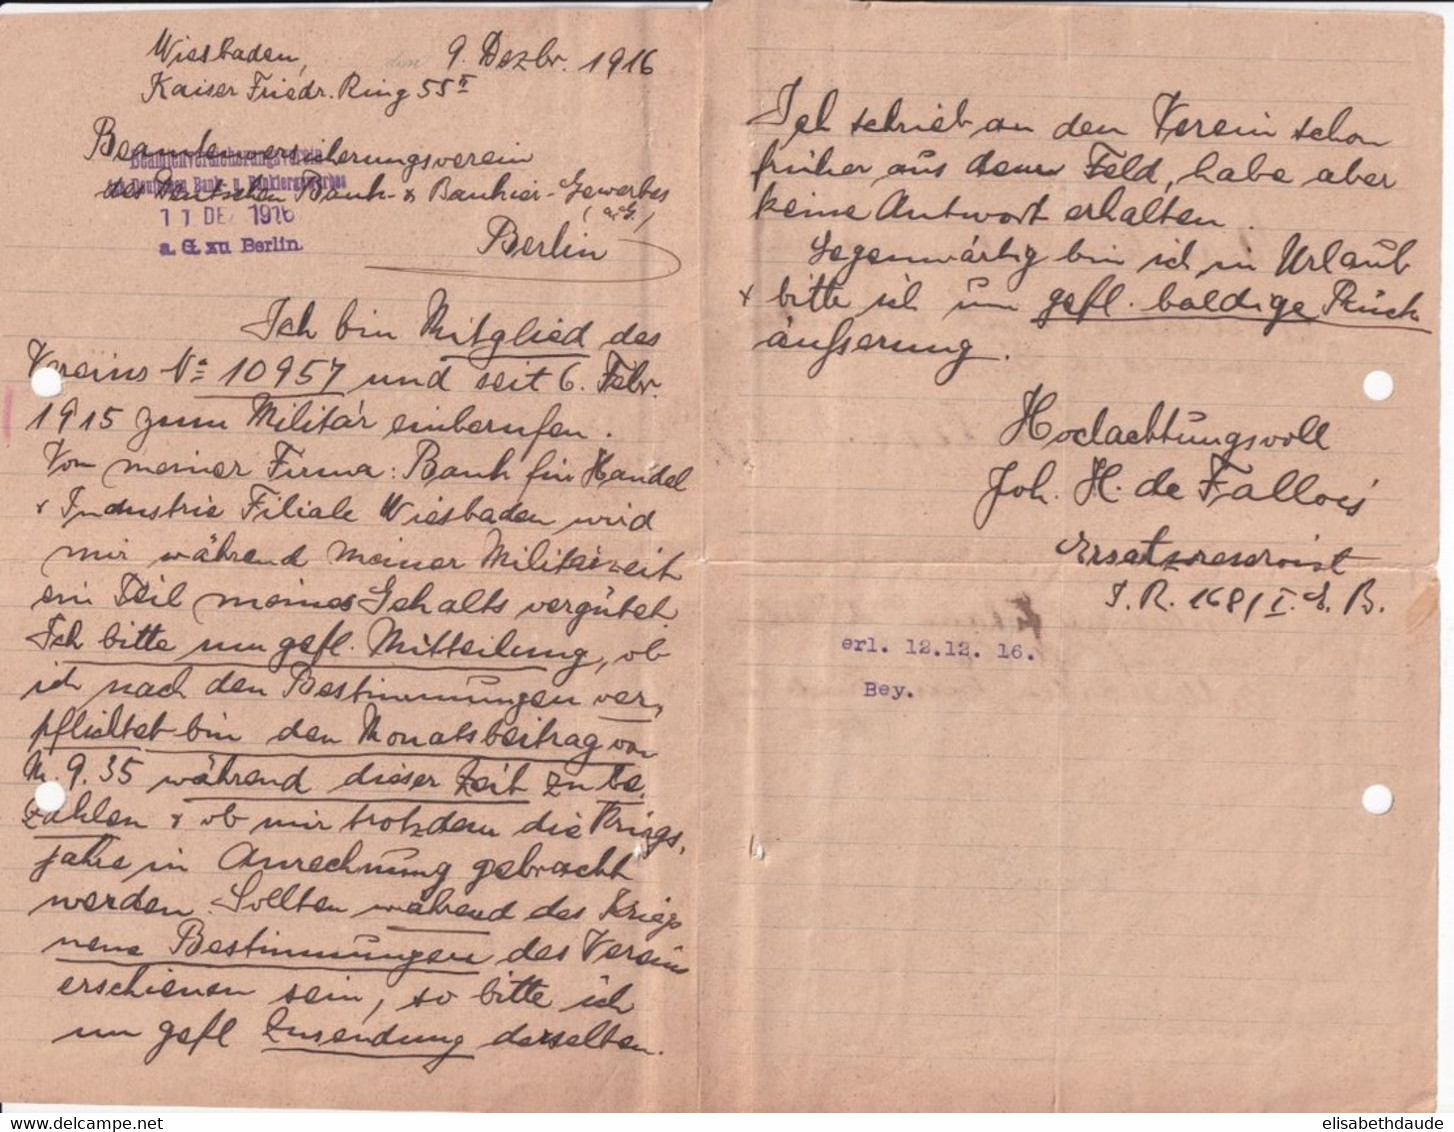 Wiesbaden, den 9. Dezbr. 1916
Kaiser Friedr. Ring 55 II
Beamtenversicherungsverein
des Deutschen Bank- & Bankier-Gewerbes
(a. G.)
Berlin
Beamtenversicherungsverein
des Deutschen Bank- u. Bankiergewerbes
11 DEZ 1916
a. G. zu Berlin.
Ich bin Mitglied des
Vereins No 10957 und seit 6. Febr.
1915 zum Militär einberufen.
Von meiner Firma: Bank für Handel
& Industrie Filiale Wiesbaden wird
mir während meiner Militärzeit
ein Teil meines Gehalts vergütet.
Ich bitte um gefl. Mitteilung, ob
ich nach den Bestimmungen ver-
pflichtet bin den Monatsbeitrag von
M. 9.35 während dieser Zeit zu be-
zahlen & ob mir trotzdem die Kriegs-
jahre in Anrechnung gebracht
werden. Sollten während des Kriegs
neue Bestimmungen des Vereins
erschienen sein, so bitte ich
um gefl Zusendung derselben.
Ich schrieb an den Verein schon
früher aus dem Feld, habe aber
keine Antwort erhalten.
Gegenwärtig bin ich in Urlaub
& bitte ich um gefl. baldige Rück-
äußerung.
Hochachtungsvoll
Joh. H. de Fallois
Ersatzreservist
I. R. 168/I. E. B.
erl. 12.12. 16.
Bey.
delcampe.net
elisabethdaude